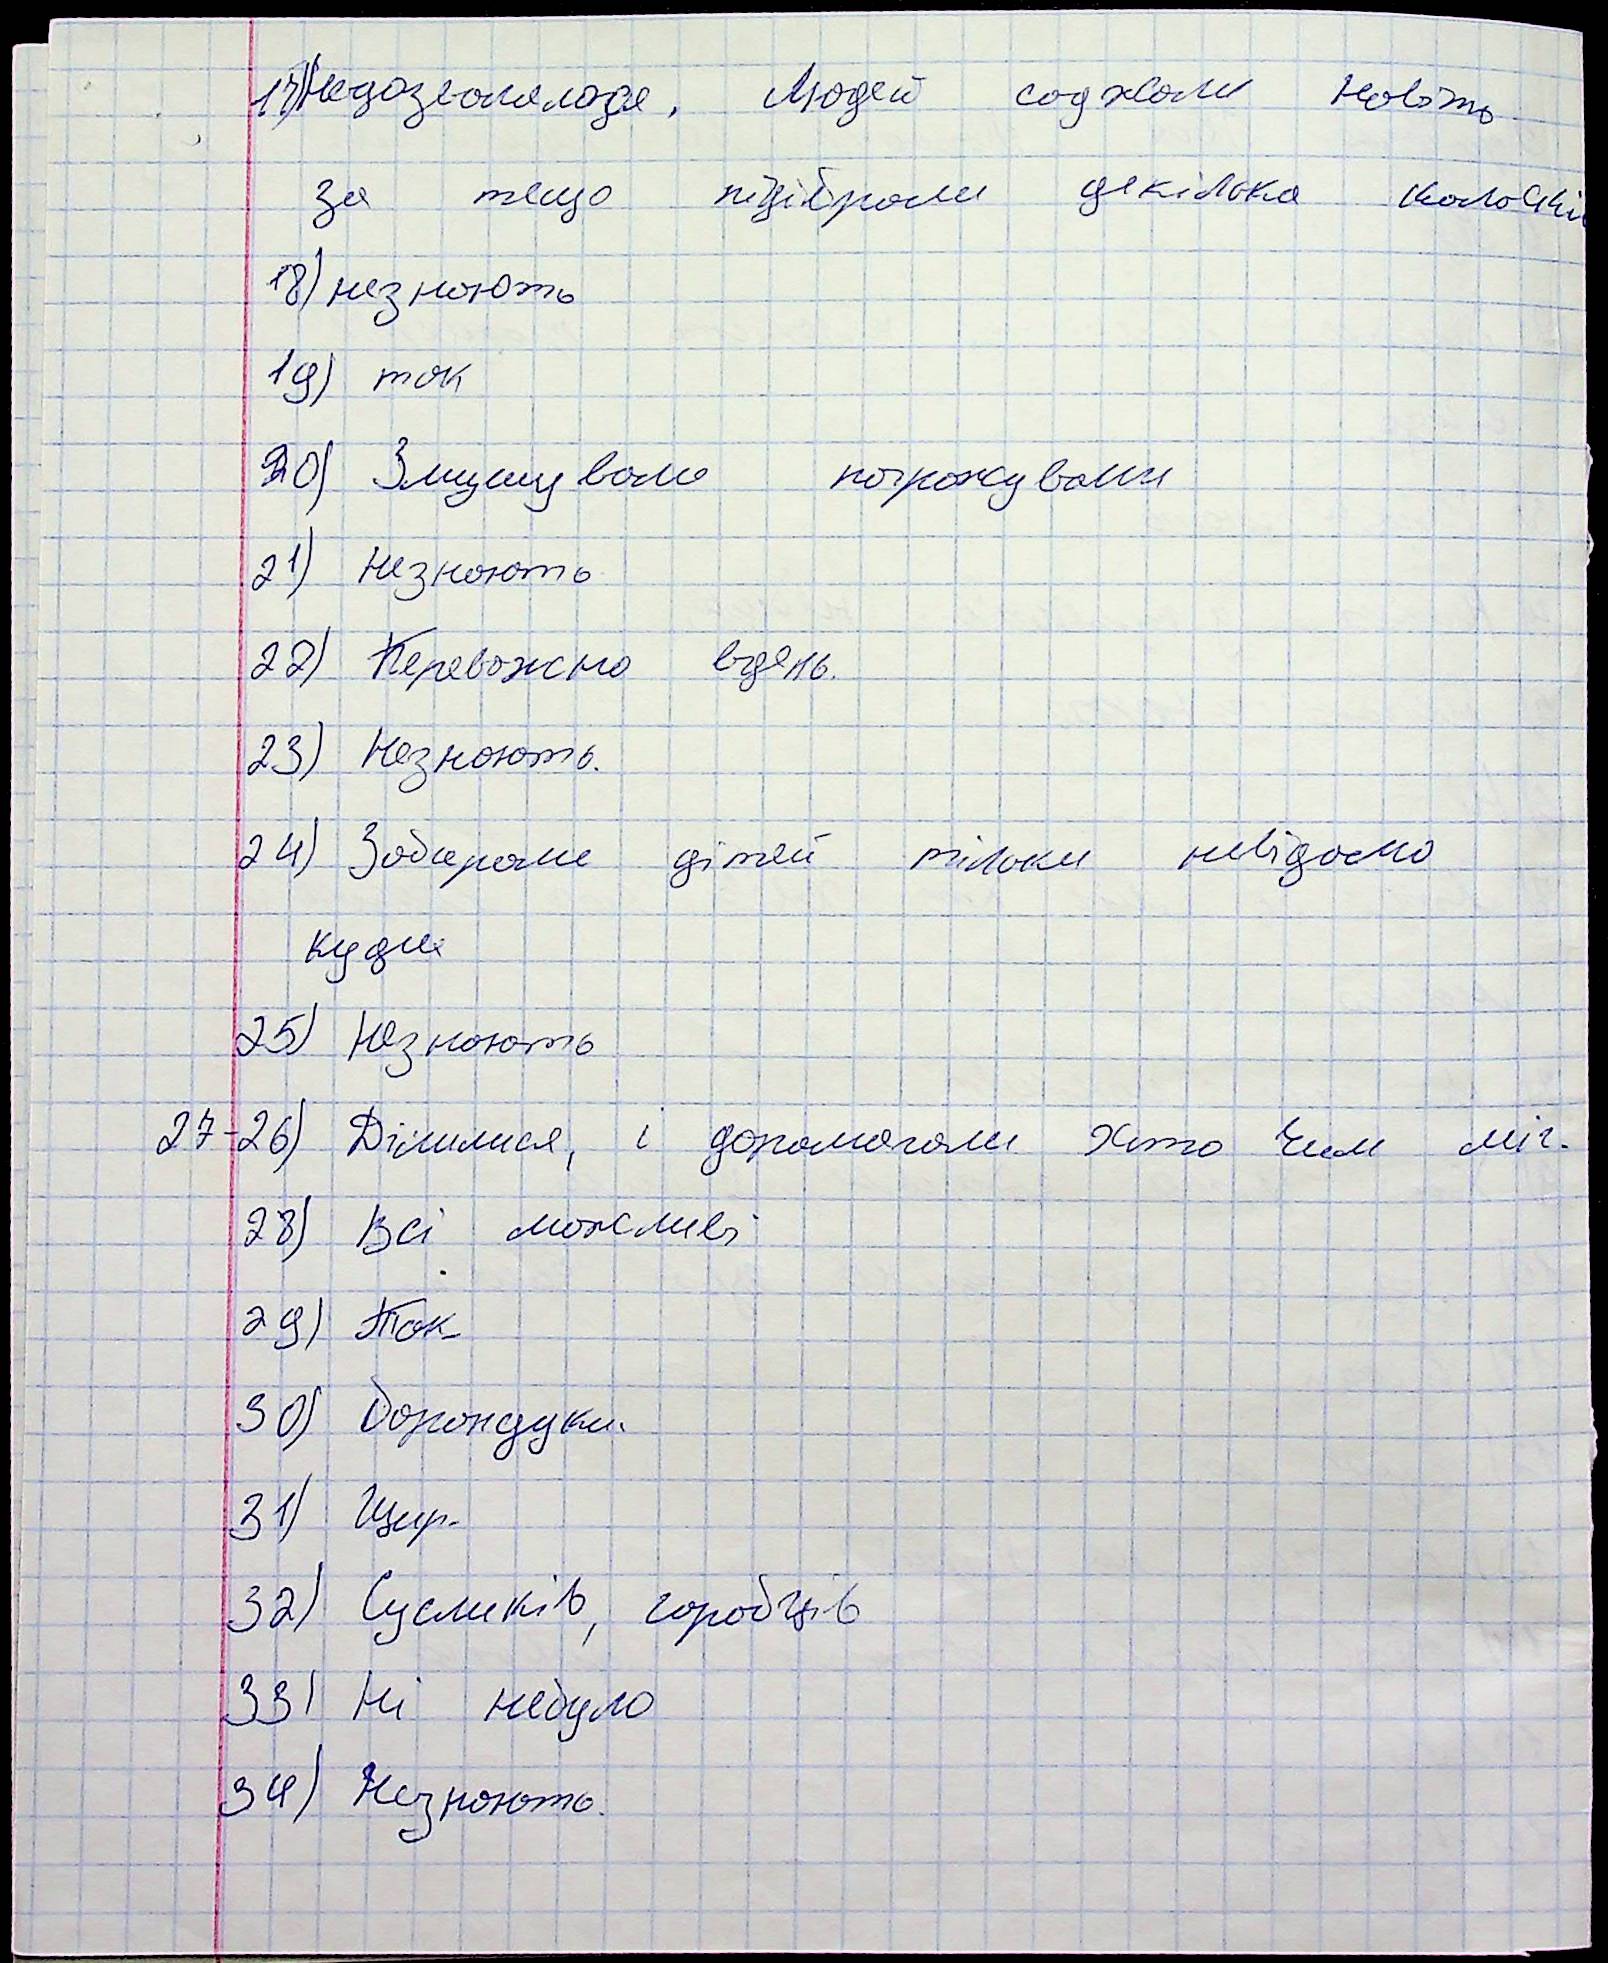 17) Недозволялося, Людей саджали навіть
за тещо підібрали декілька колоскі
18) незнають
19) так
20) Змушували погрожували
21) Незнають
22) Переважно вдень.
23) Незнають.
24) Забирали дітей тільки невідомо
куди
25) Незнають
27-26) Ділилися, і допомагали хто чим міг.
28) Всі можливі
29) Так
30) борондуки.
31) Щир.
32) Сусликів, горобців
33) Ні небуло
34) Незнають.